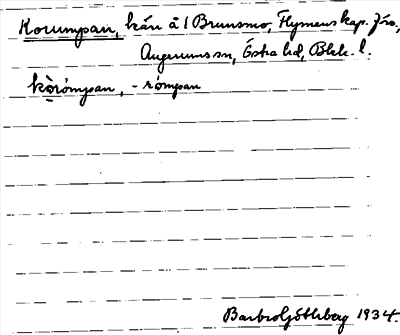 Korumpan, kärr å 1 Brunsmo, Flymens kap. förs.,
Augerums sn, Östra hd, Blek. l.
kòrómpan, -rómpan
Barbro Göthberg 1934.